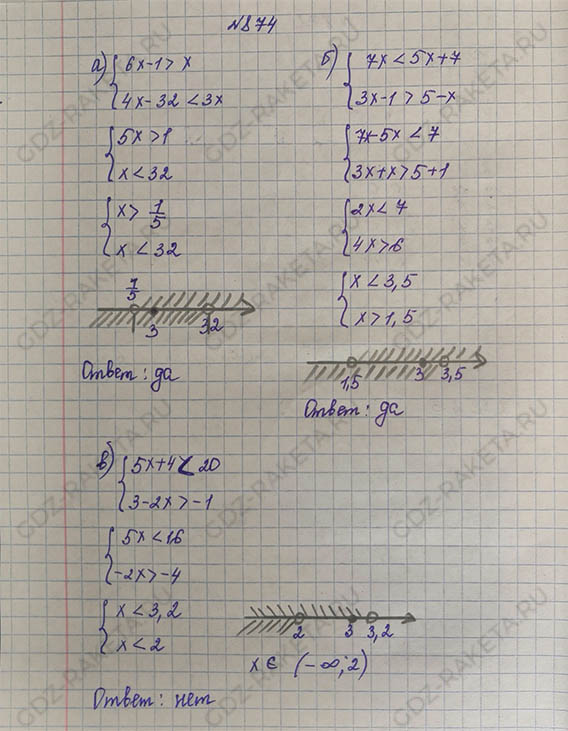 №874
а) { 6x-1 > x
4x-32 < 3x
{ 5x > 1
x < 32
{ x > 1/5
x < 32
1/5 3 32
Ответ: да
б) { 7x < 5x+7
3x-1 > 5-x
{ 7x-5x < 7
3x+x > 5+1
{ 2x < 7
4x > 6
{ x < 3,5
x > 1,5
1,5 3 3,5
Ответ: да
в) { 5x+4 < 20
3-2x > -1
{ 5x < 16
-2x > -4
{ x < 3,2
x < 2
2 3 3,2
x ∈ (-∞; 2)
Ответ: нет
GDZ-RAKETA.RU